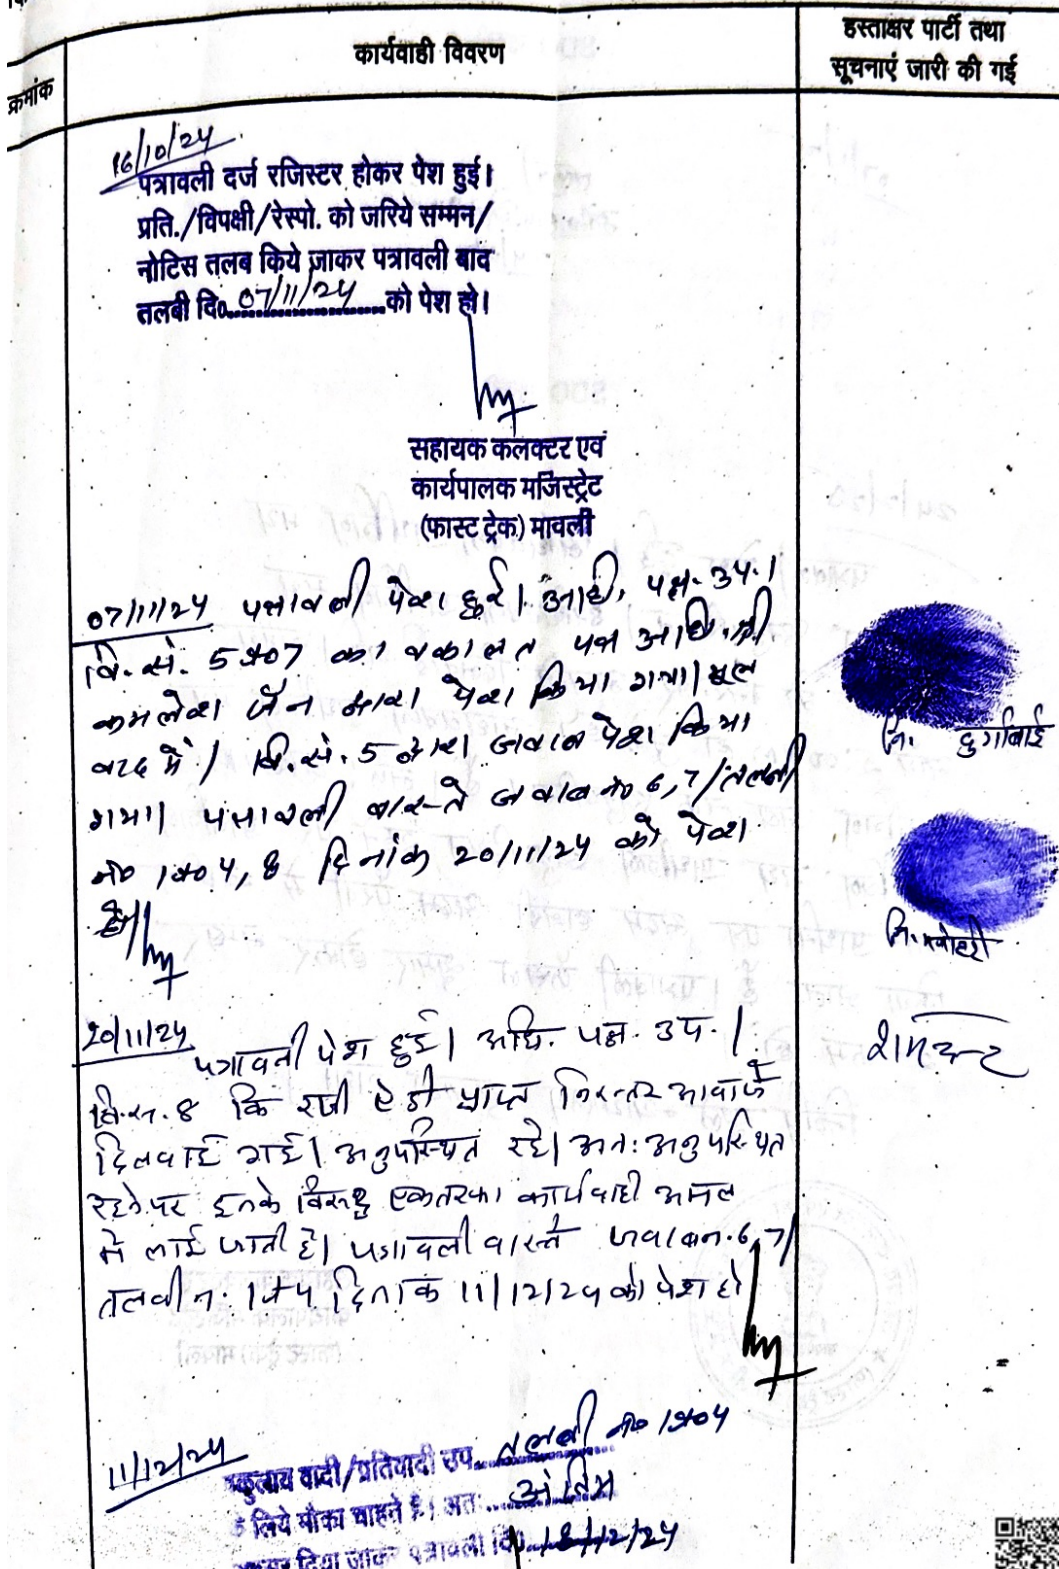 क्रमांक
कार्यवाही विवरण
हस्ताक्षर पार्टी तथा
सूचनाएं जारी की गई
16/10/24
पत्रावली दर्ज रजिस्टर होकर पेश हुई।
प्रति./विपक्षी/रेस्पो. को जरिये सम्मन/
नोटिस तलब किये जाकर पत्रावली बाद
तलबी दि० 07/11/24 को पेश हो।
सहायक कलक्टर एवं
कार्यपालक मजिस्ट्रेट
(फास्ट ट्रेक) मावली
07/11/24 पत्रावली पेश हुई। अधि. पक्ष. उप.।
वि.सं. 5 से 07 का वकालत पत्र अधि. श्री
कमलेश जैन द्वारा पेश किया गया। मूल
वाद में। वि.सं. 5 द्वारा जवाब पेश किया
गया। पत्रावली वास्ते जवाब नं० 6,7/तलबी
नं० 1 से 04, 8 दिनांक 20/11/24 को पेश
हो।
नि. दुर्गाबाई
नि.
20/11/24 पत्रावली पेश हुई। अधि. पक्ष. उप.।
वि.सं. 8 कि रजी ऐडी प्राप्त निरन्तर आवाजे
दिलवाई गई। अनुपस्थित रहे। अतः अनुपस्थित
रहने पर इनके विरूद्ध एकतरफा कार्यवाही अमल
में लाई जाती है। पत्रावली वास्ते जवाब नं. 6,7/
तलबी नं. 1 से 4 दिनांक 11/12/24 को पेश हो
11/12/24
वादी/प्रतिवादी उप. तलबी नं० 1 से 04
के लिये मौका चाहते है। अतः अंतिम
दिया जाकर पत्रावली दि० 18/12/24